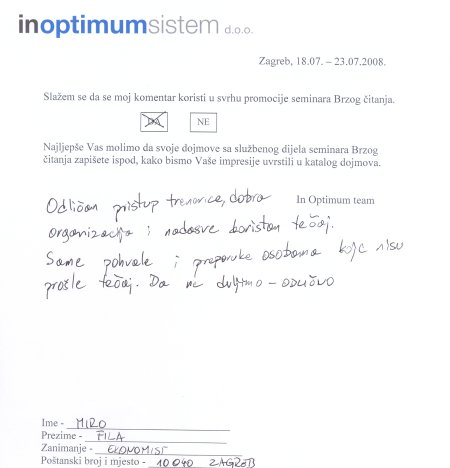 inoptimumsistem d.o.o.
Zagreb, 18.07. – 23.07.2008.
Slažem se da se moj komentar koristi u svrhu promocije seminara Brzog čitanja.
DA NE
Najljepše Vas molimo da svoje dojmove sa službenog dijela seminara Brzog
čitanja zapišete ispod, kako bismo Vaše impresije uvrstili u katalog dojmova.
In Optimum team
Odličan pristup trenerice, dobra
organizacija i nadasve koristan tečaj.
Same pohvale i preporuke osobama koje nisu
prošle tečaj. Da ne duljimo – ODLIČNO
Ime - MIRO
Prezime - FILA
Zanimanje - EKONOMIST
Poštanski broj i mjesto - 10 040 ZAGREB